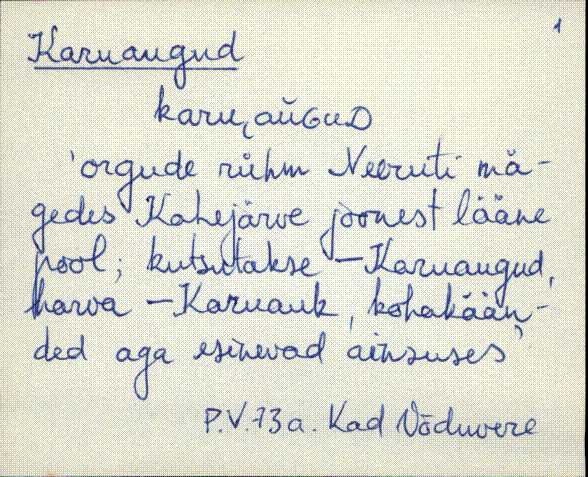 1
Karuaugud
karu‿aŭGuD
'orgude rühm Neeruti mä-
gedes Kahejärve joonest lääne
pool; kutsutakse – Karuaugud,
harva – Karuauk, kohakään-
ded aga esinevad ainsuses'
P.V. 73 a. Kad Võduvere